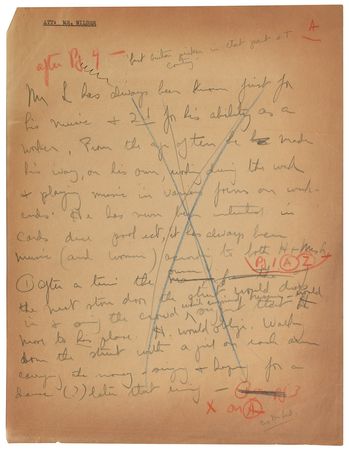 ATT: MR. WILSON
A
after Pg 4 —
but guitar pickers in that part of
country
Mr L has always been known first for
his music + 2nd for his ability as a
worker, From the age of ten he made
his way, on his own, working during the week
+ playing music in various forms on week-
ends. He has never been interested in
cards dice pool ect, it has always been
music (and women) according to both H + Mrs L
Pg 1 A 2
① after a time the
the next store door the would drop
in + the crowd
more to his place. H. would oblige. Walking
down the street with a girl on each arm
carrying the money - singing + hoping for a
dance (?) later that evening —
X on A